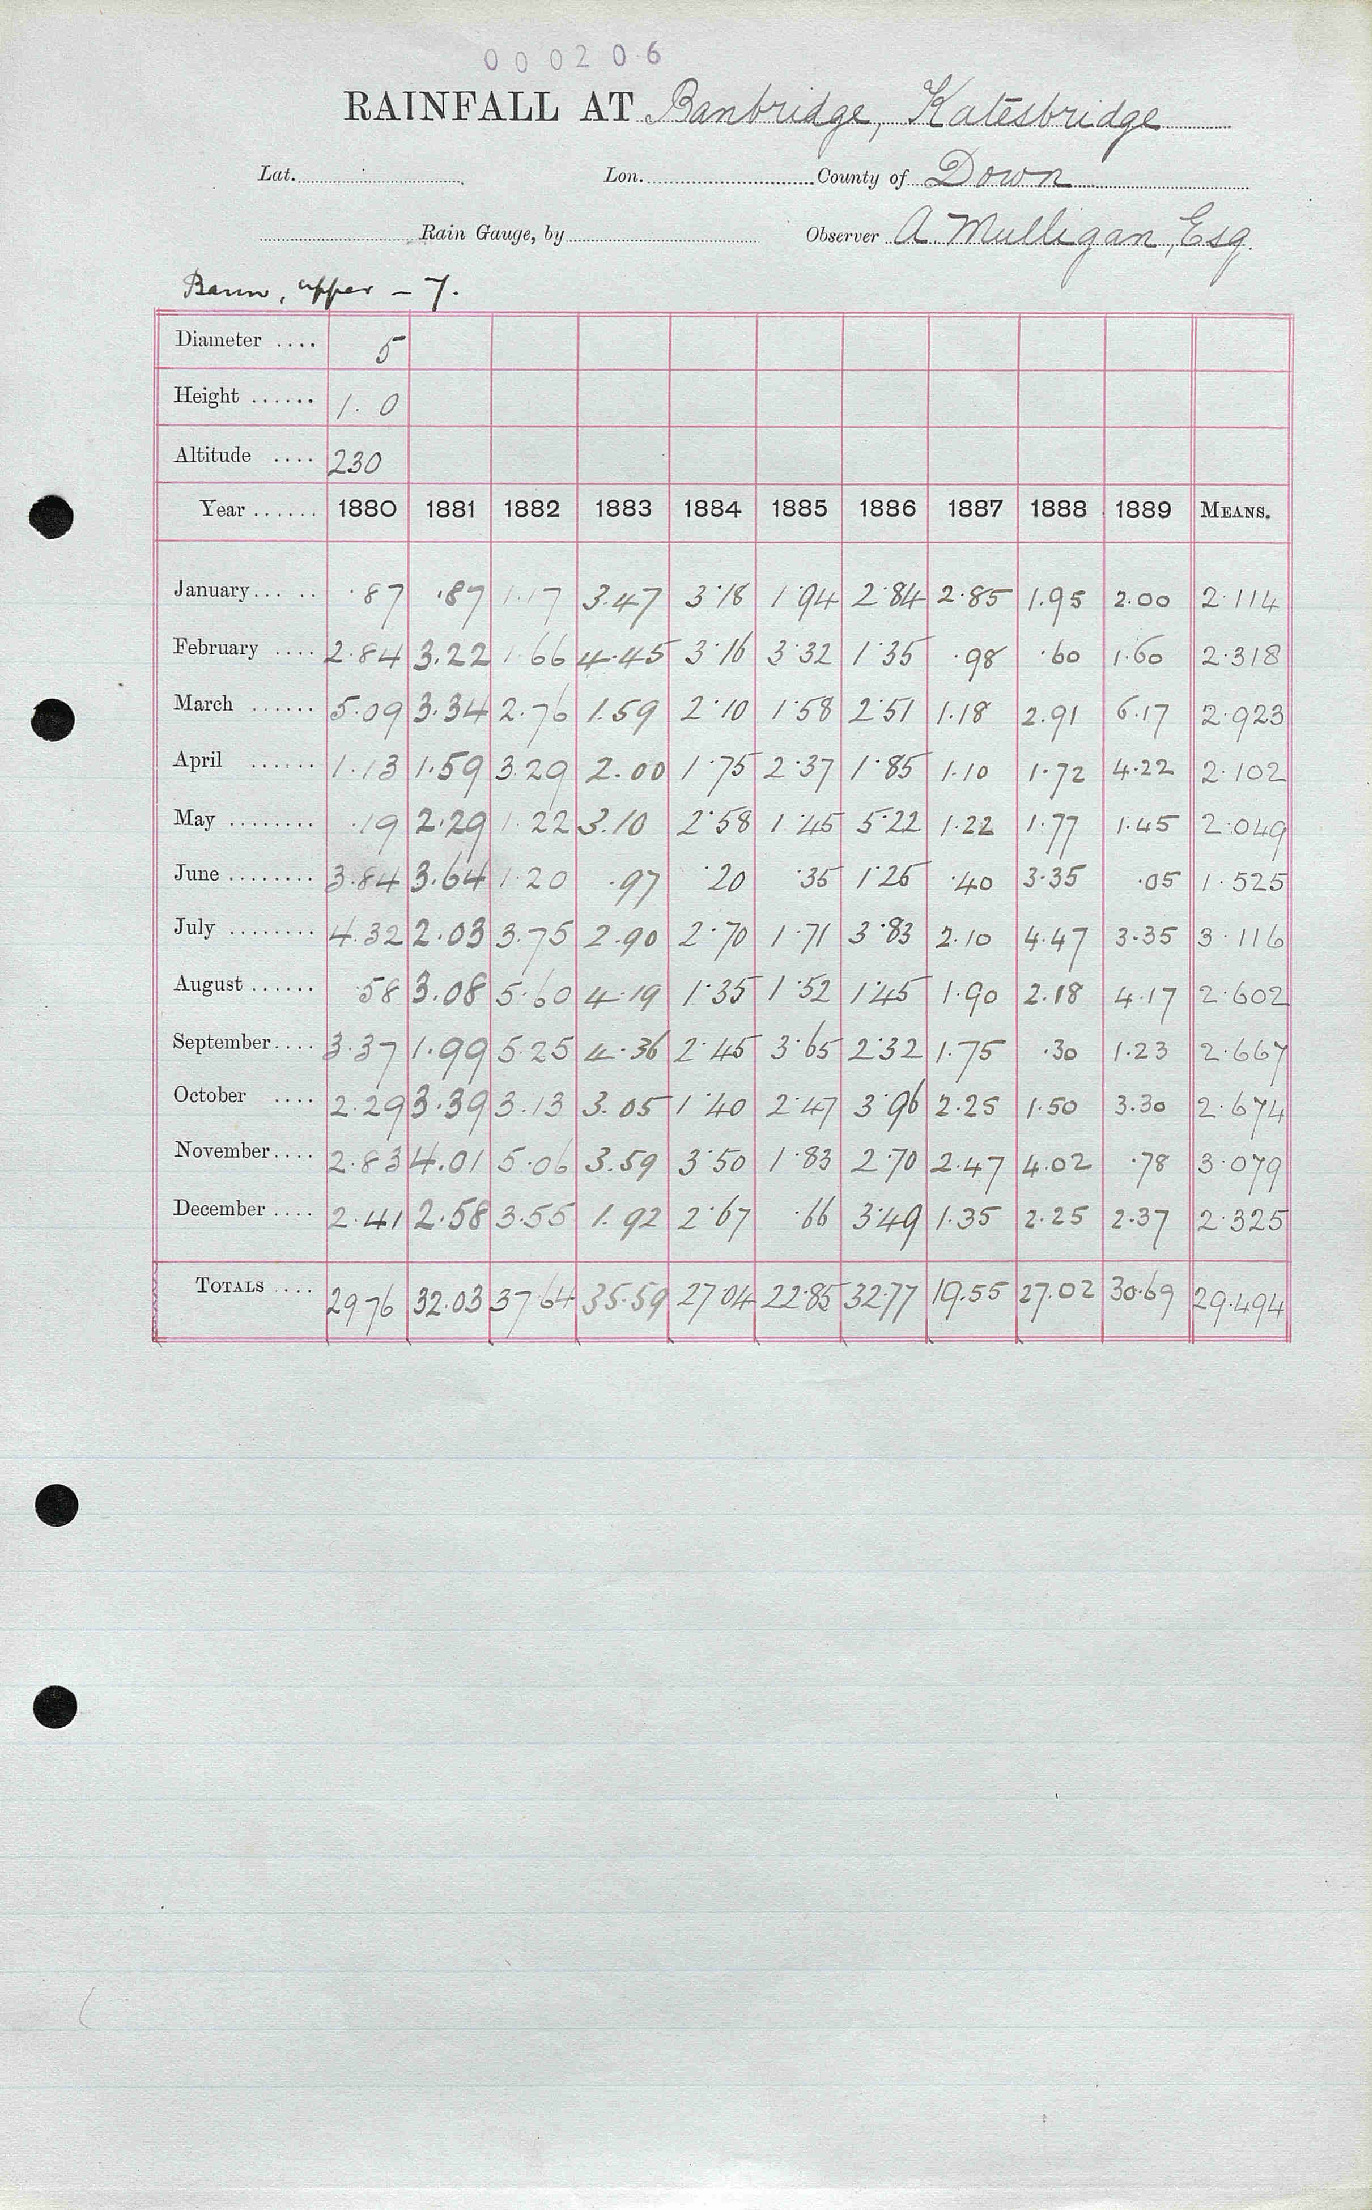 000206
RAINFALL AT Banbridge, Katesbridge
Lat. Lon. County of Down
Rain Gauge, by Observer A. Mulligan, Esq.
Bann, upper – 7.
Diameter .... 5
Height ...... 1.0
Altitude .... 230
Year ...... 1880 1881 1882 1883 1884 1885 1886 1887 1888 1889 MEANS.
January ..... .87 .87 1.17 3.47 3.18 1.94 2.84 2.85 1.95 2.00 2.114
February .... 2.84 3.22 1.66 4.45 3.16 3.32 1.35 .98 .60 1.60 2.318
March ...... 5.09 3.34 2.76 1.59 2.10 1.58 2.51 1.18 2.91 6.17 2.923
April ...... 1.13 1.59 3.29 2.00 1.75 2.37 1.85 1.10 1.72 4.22 2.102
May ........ .19 2.29 1.22 3.10 2.58 1.45 5.22 1.22 1.77 1.45 2.049
June ........ 3.84 3.64 1.20 .97 .20 .35 1.25 .40 3.35 .05 1.525
July ........ 4.32 2.03 3.75 2.90 2.70 1.71 3.83 2.10 4.47 3.35 3.116
August ...... .58 3.08 5.60 4.19 1.35 1.52 1.45 1.90 2.18 4.17 2.602
September .... 3.37 1.99 5.25 4.36 2.45 3.65 2.32 1.75 .30 1.23 2.667
October .... 2.29 3.39 3.13 3.05 1.40 2.47 3.96 2.25 1.50 3.30 2.674
November .... 2.83 4.01 5.06 3.59 3.50 1.83 2.70 2.47 4.02 .78 3.079
December .... 2.41 2.58 3.55 1.92 2.67 .66 3.49 1.35 2.25 2.37 2.325
TOTALS .... 29.76 32.03 37.64 35.59 27.04 22.85 32.77 19.55 27.02 30.69 29.494